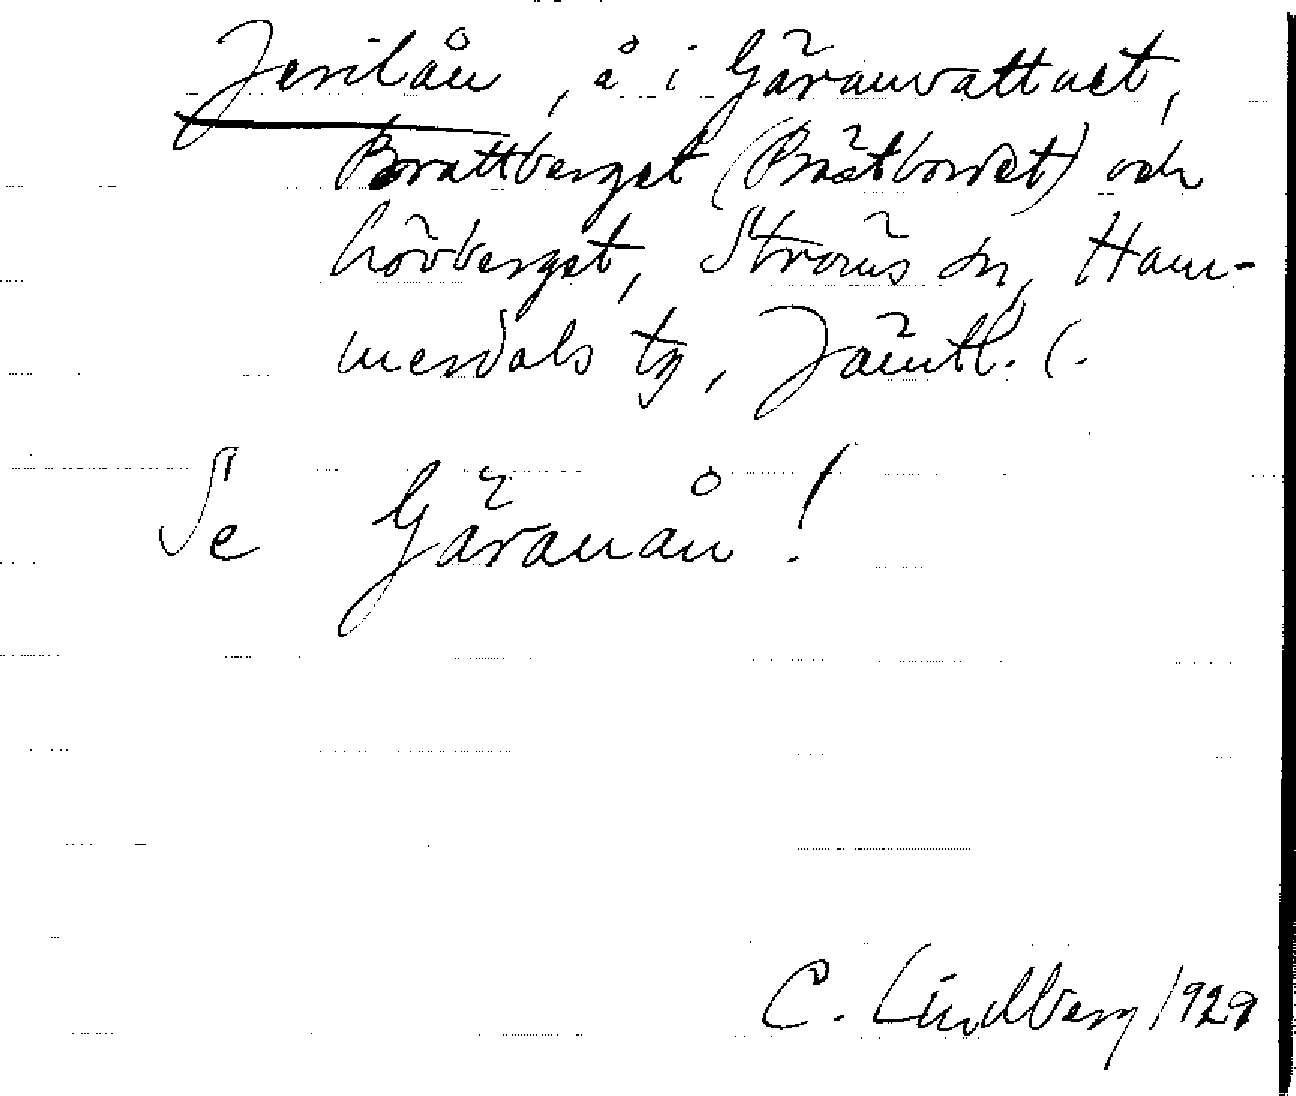 Jerilån, å i Gäranvattnet,
Brattberget (Brätbordet) och
Lövberget, Ströms sn, Ham-
merdals tg, Jämtl. l.
Se Gäranån!
C. Lindberg 1929